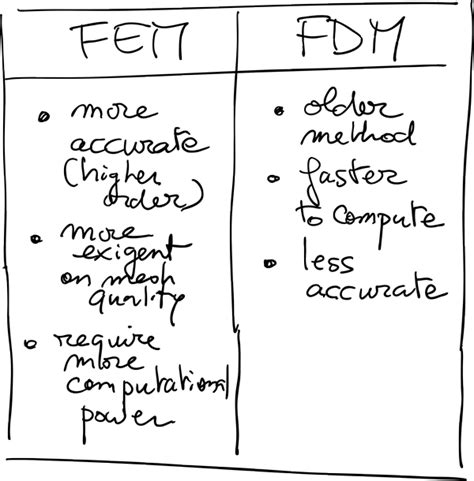 FEM
• more
accurate
(higher
order)
• more
exigent
on mesh
quality
• require
more
computational
power
FDM
• older
method
• faster
to compute
• less
accurate